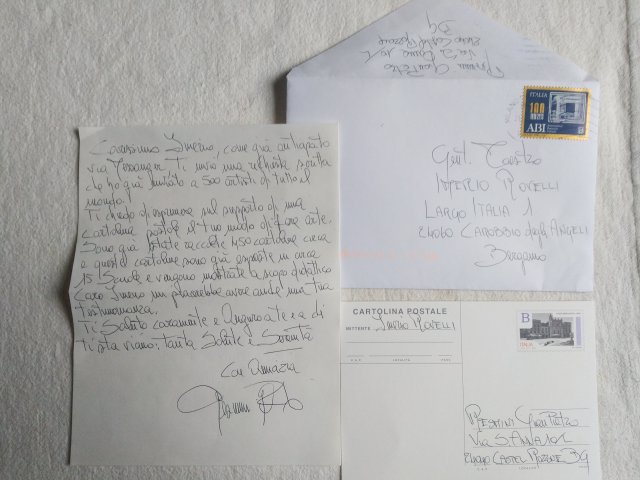 Carissimo Imerio, come già anticipato
via Messanger Ti invio una richiesta scritta
che ho già invitato a 500 artisti di tutto il
mondo.
Ti chiedo di esprimere sul supporto di una
cartolina postale il tuo modo di fare arte.
Sono già state raccolte 450 cartoline circa
e queste cartoline sono già esposte in circa
15 Scuole e vengono mostrate a scopo didattico
Caro Imerio mi piacerebbe avere anche una tua
testimonianza.
Ti Saluto caramente e Auguro a te e a chi
Ti sta vicino: tanta Salute e Serenità
Con Amicizia
24060 Castel Rozzone
BG
ITALIA
100
ABI
Gent. Maestro
IMERIO ROVELLI
LARGO ITALIA 1
24060 CAROBBIO degli ANGELI
Bergamo
CARTOLINA POSTALE
MITTENTE IMERIO ROVELLI
C.A.P. LOCALITÀ PROV.
B
ITALIA
PRESTINI GianPietro
VIA S. ANNA
24040 CASTEL ROZZONE BG
C.A.P. LOCALITÀ